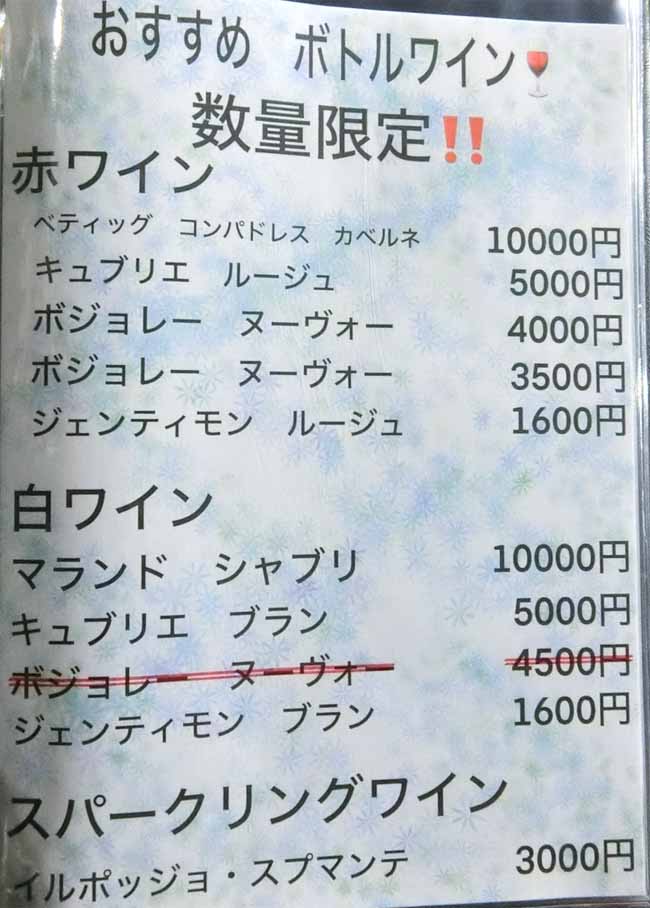 おすすめ ボトルワイン🍷
数量限定‼️
赤ワイン
ベティッグ コンパドレス カベルネ 10000円
キュブリエ ルージュ 5000円
ボジョレー ヌーヴォー 4000円
ボジョレー ヌーヴォー 3500円
ジェンティモン ルージュ 1600円
白ワイン
マランド シャブリ 10000円
キュブリエ ブラン 5000円
ボジョレー ヌーヴォー 4500円
ジェンティモン ブラン 1600円
スパークリングワイン
イルポッジョ・スプマンテ 3000円